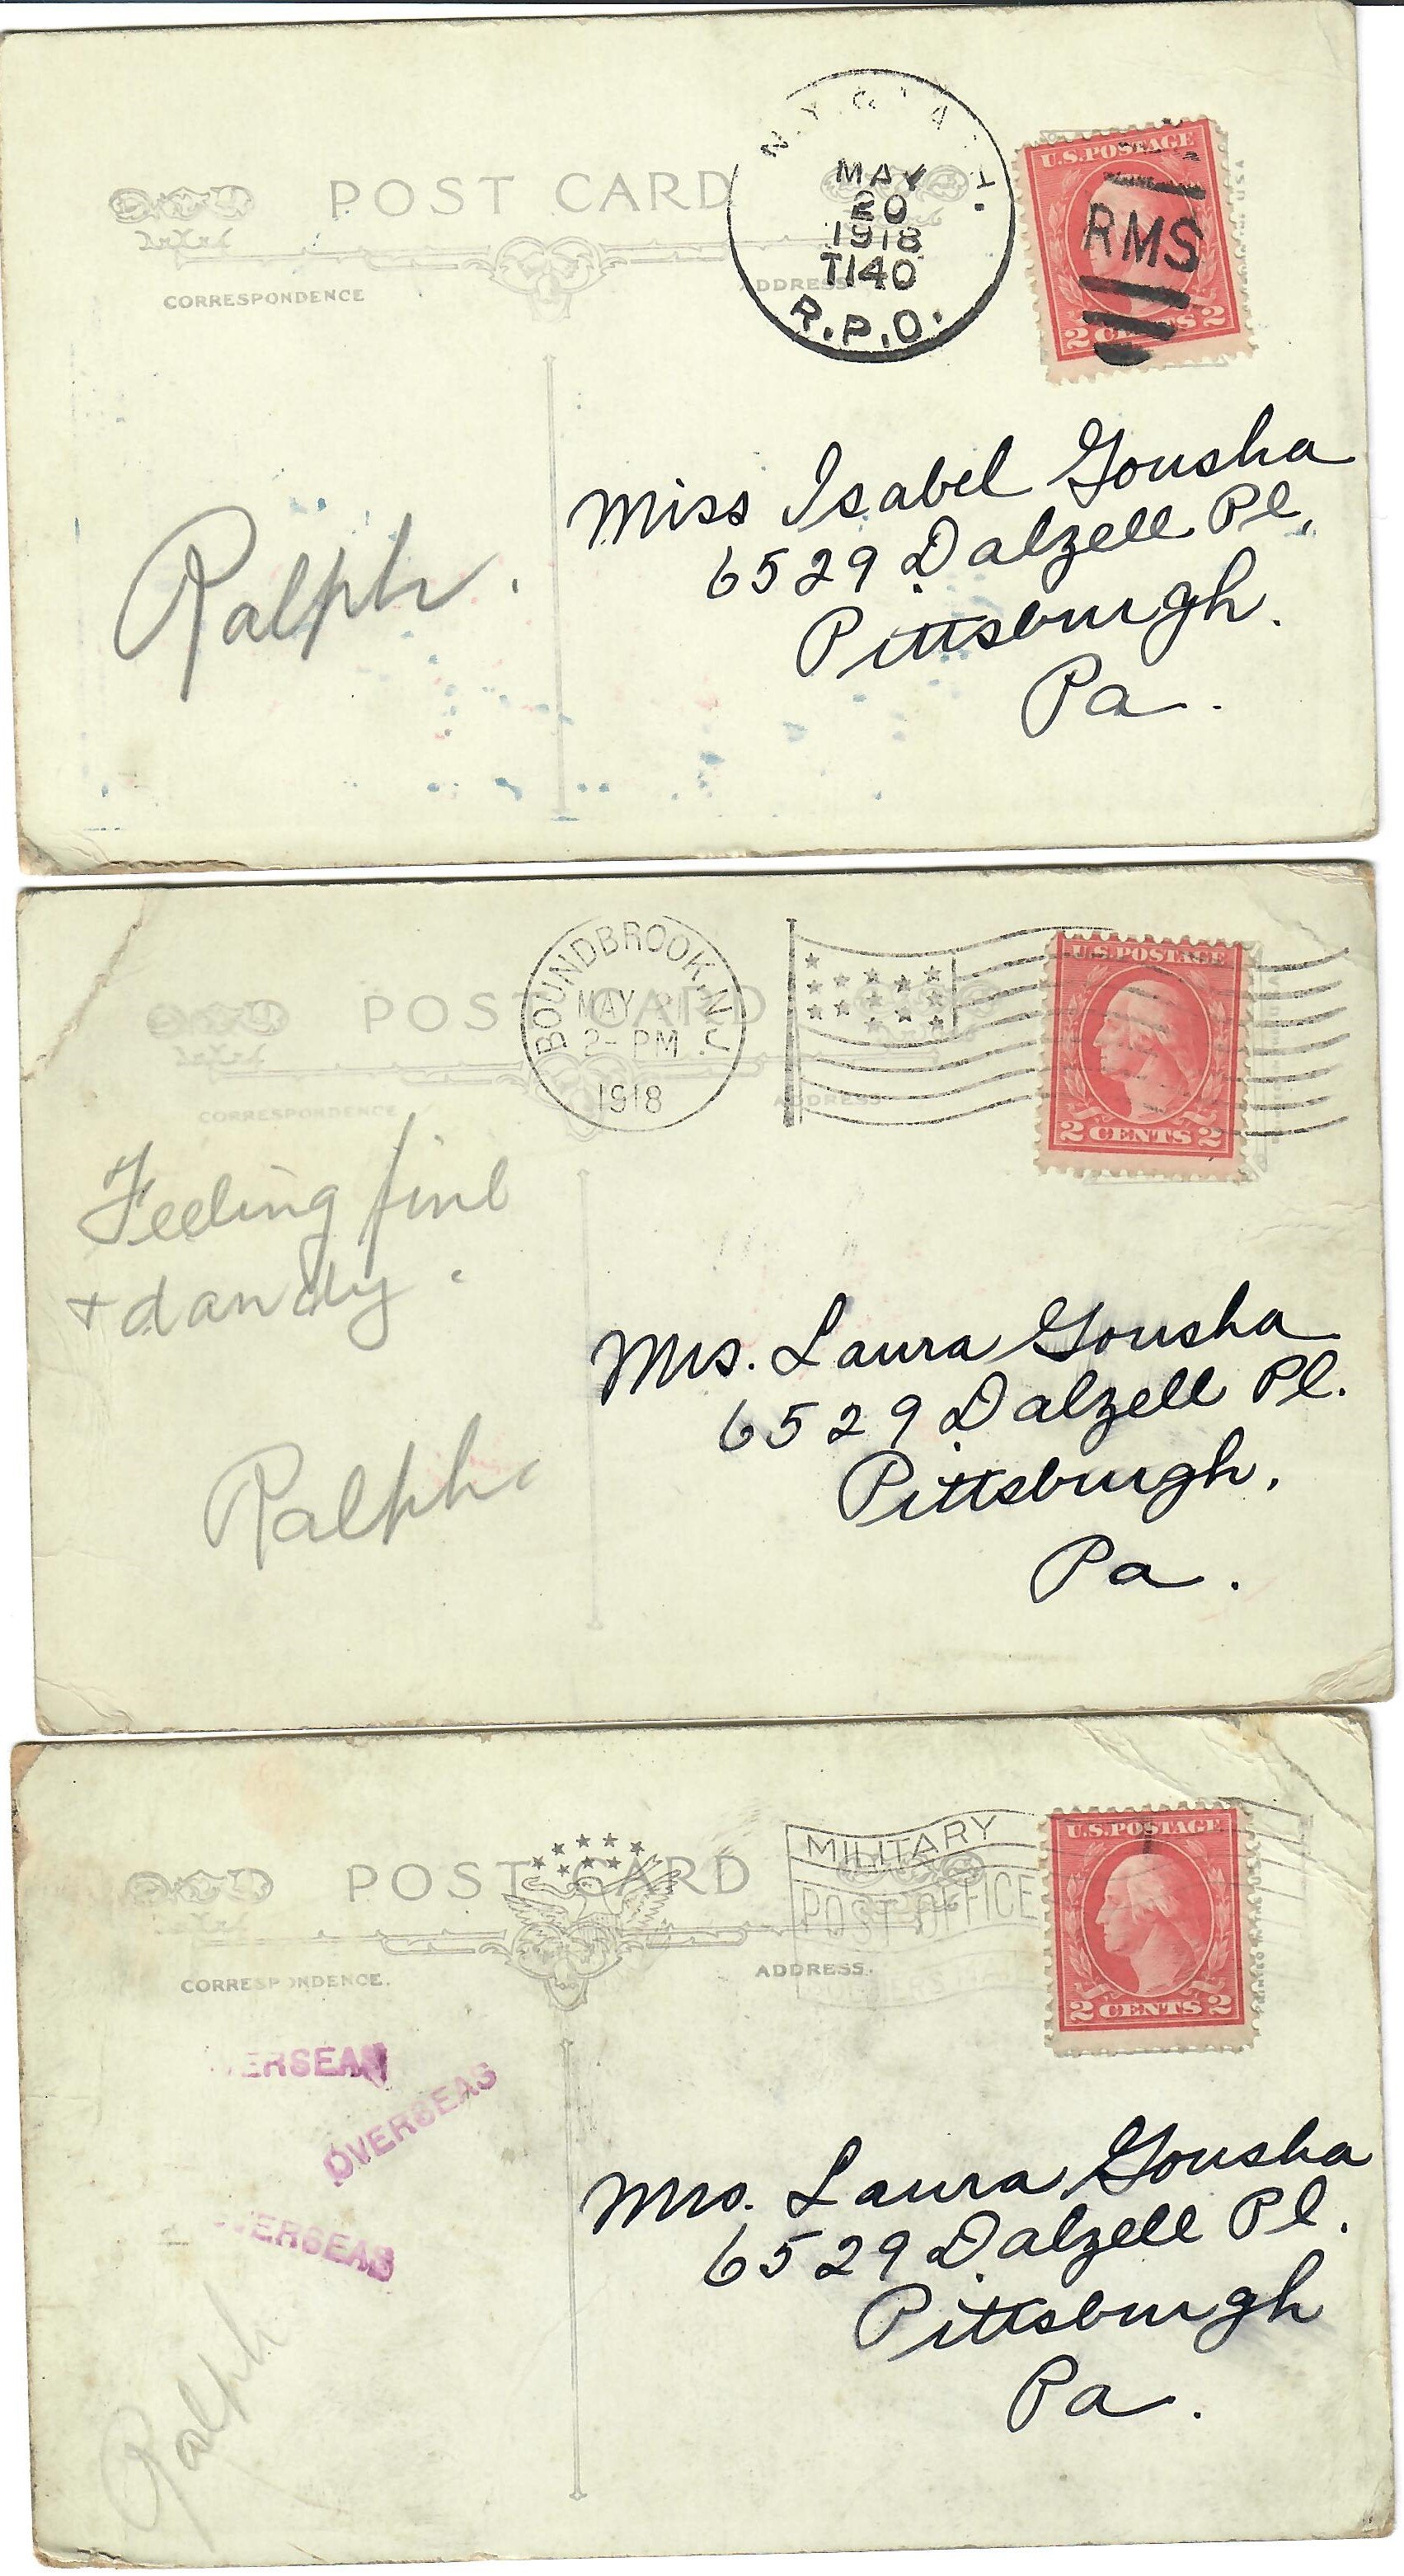 POST CARD
CORRESPONDENCE
ADDRESS
MAY
20
1918
T140
R.P.O.
U.S. POSTAGE
RMS
2 CENTS 2
Ralph.
Miss Isabel Gousha
6529 Dalzell Pl.
Pittsburgh.
Pa.
POST CARD
CORRESPONDENCE
ADDRESS
BOUNDBROOK, N.J.
MAY
2- PM
1918
U.S. POSTAGE
2 CENTS 2
Feeling fine
+ dandy.
Ralph.
Mrs. Laura Gousha
6529 Dalzell Pl.
Pittsburgh.
Pa.
POST CARD
CORRESPONDENCE.
ADDRESS.
MILITARY
POST OFFICE
U.S. POSTAGE
2 CENTS 2
OVERSEAS
Ralph
Mrs. Laura Gousha
6529 Dalzell Pl.
Pittsburgh
Pa.